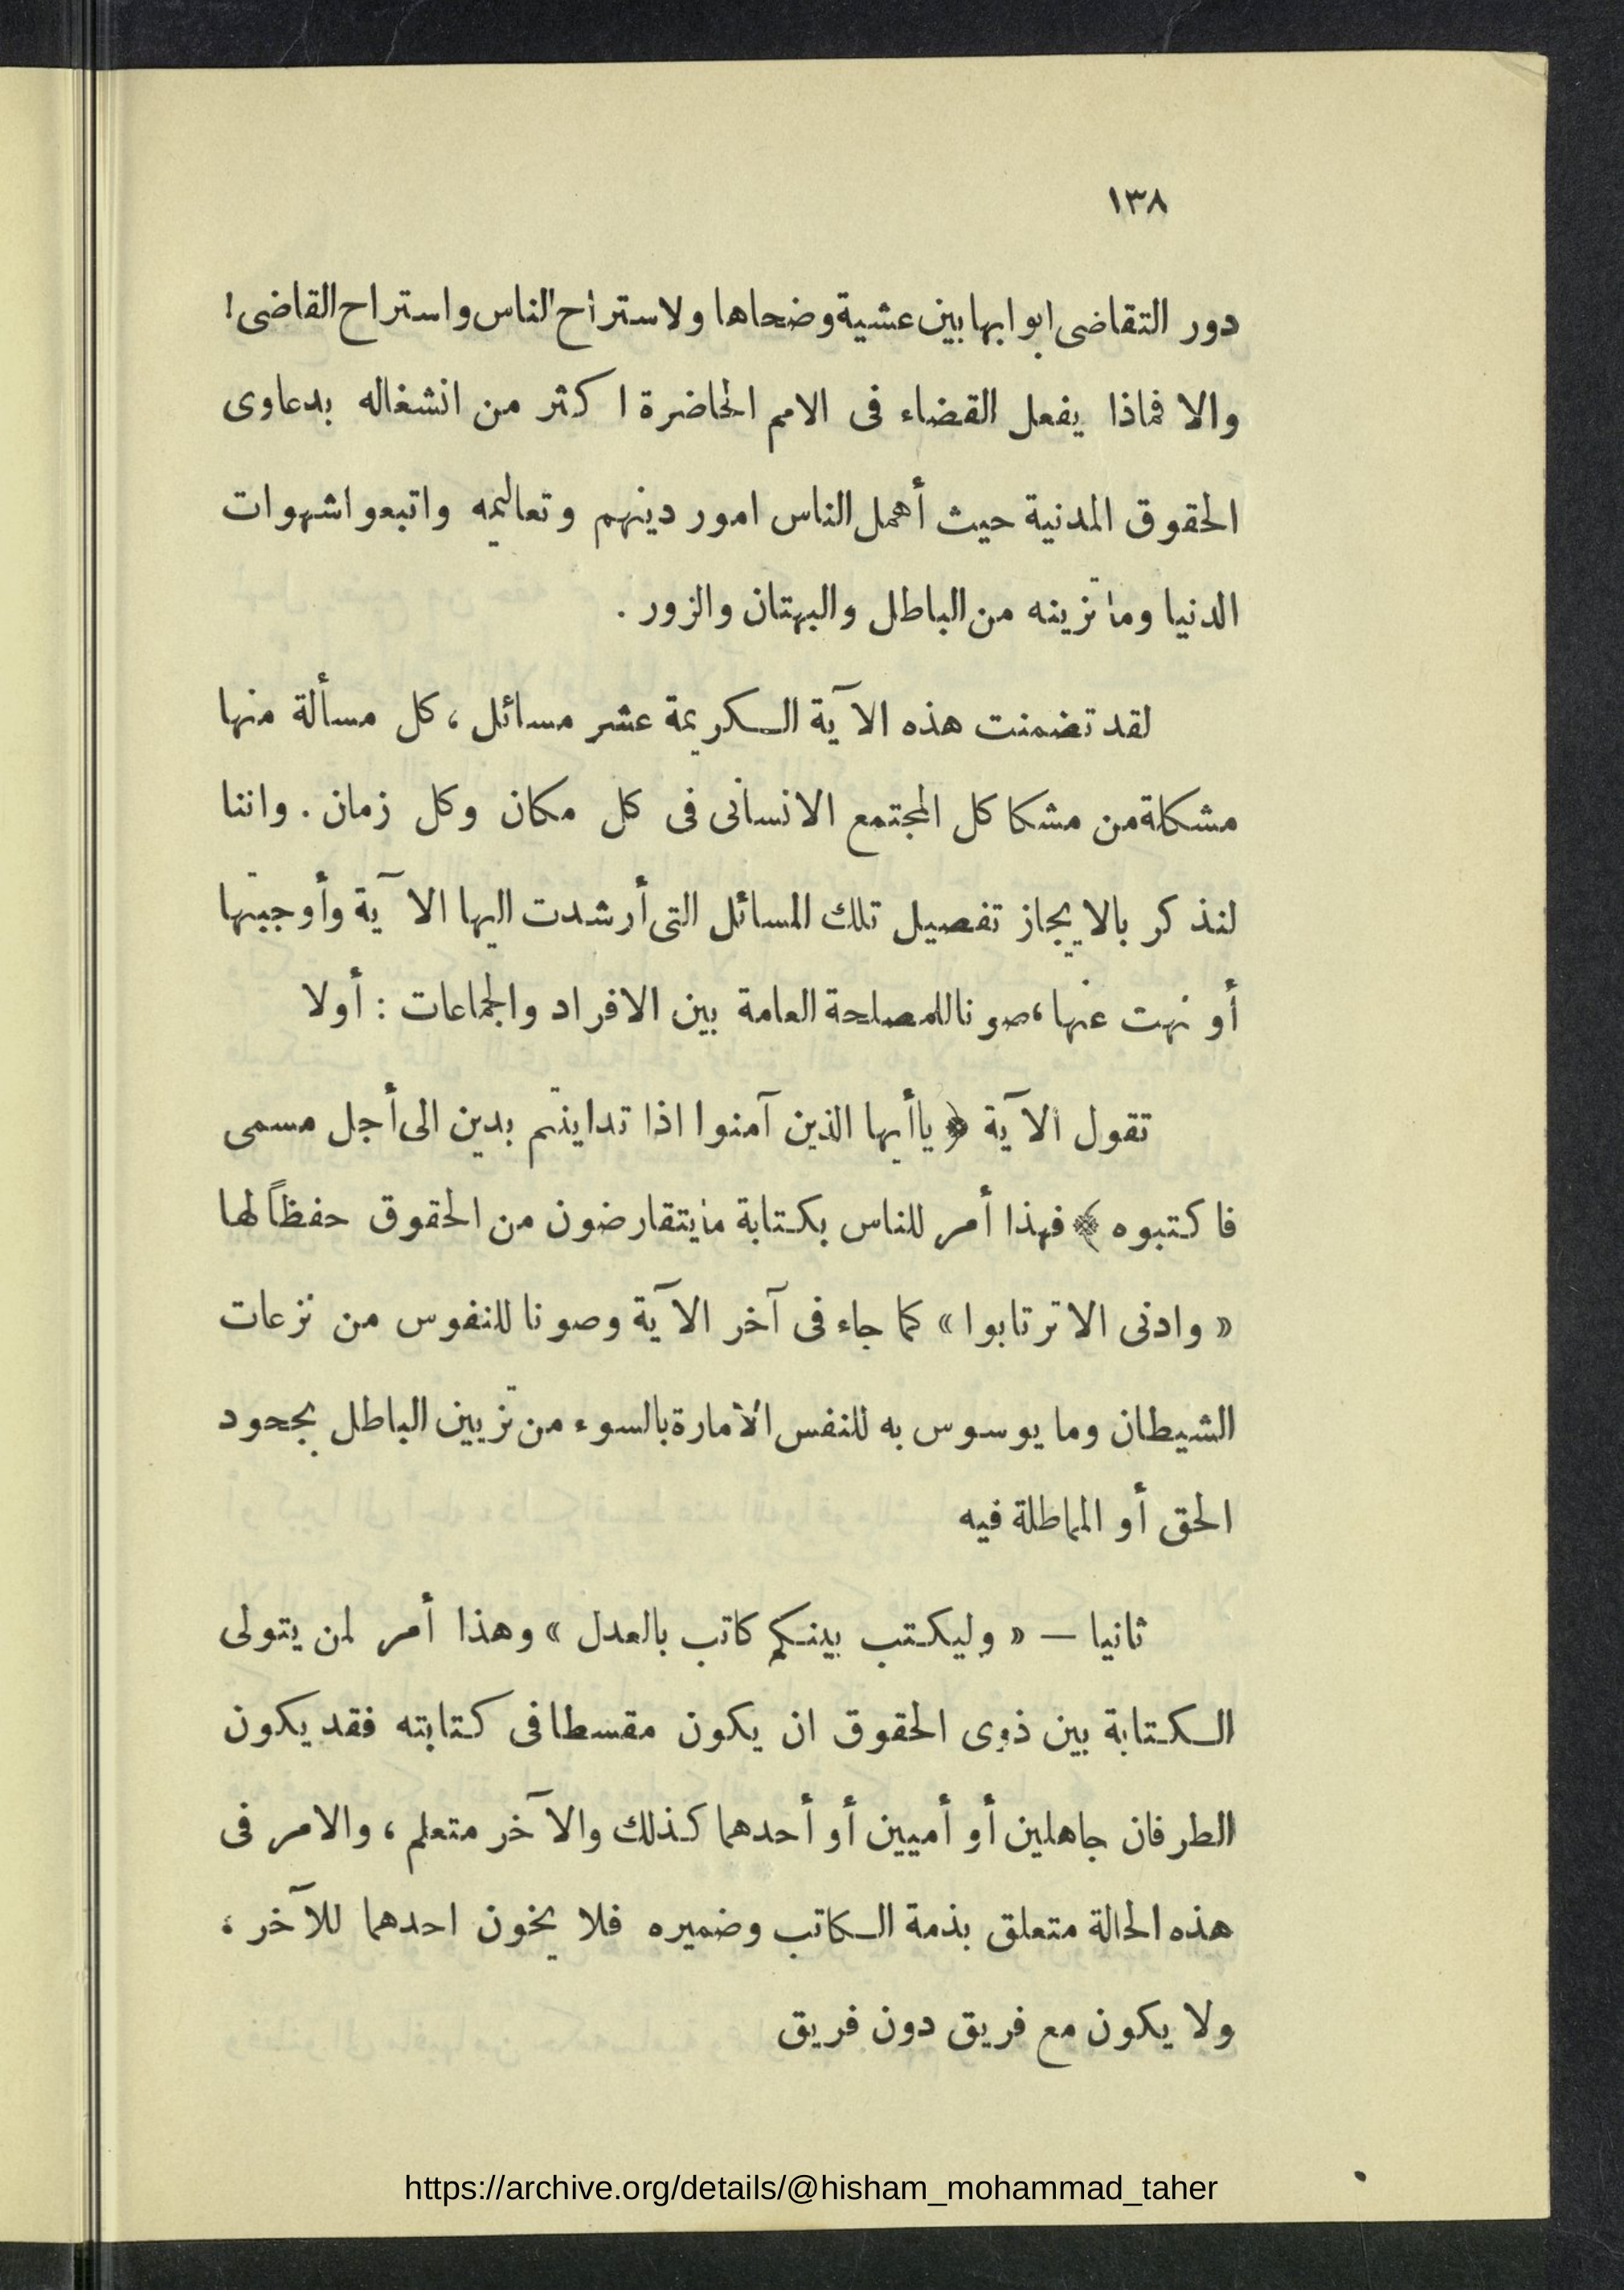 ١٣٨
دور التقاضى ابوابها بين عشية وضحاها ولاستراح الناس واستراح القاضى!
والا فماذا يفعل القضاء فى الامم الحاضرة اكثر من انشغاله بدعاوى
الحقوق المدنية حيث أهمل الناس امور دينهم وتعاليمه واتبعوا شهوات
الدنيا وما تزينه من الباطل والبهتان والزور .
لقد تضمنت هذه الآية الكريمة عشر مسائل ، كل مسألة منها
مشكلة من مشكا كل المجتمع الانسانى فى كل مكان وكل زمان . واننا
لنذكر بالايجاز تفصيل تلك المسائل التى أرشدت اليها الآية وأوجبتها
أو نهت عنها ، صونا للمصلحة العامة بين الافراد والجماعات : أولا
تقول الآية ﴿ ياأيها الذين آمنوا اذا تداينتم بدين الى أجل مسمى
فاكتبوه ﴾ فهذا أمر للناس بكتابة مايتقارضون من الحقوق حفظاً لها
« وادنى الا ترتابوا » كما جاء فى آخر الآية وصونا للنفوس من نزعات
الشيطان وما يوسوس به للنفس الأمارة بالسوء من تزيين الباطل بجحود
الحق أو المماطلة فيه
ثانيا — « وليكتب بينكم كاتب بالعدل » وهذا أمر لمن يتولى
الكتابة بين ذوى الحقوق ان يكون مقسطا فى كتابته فقد يكون
الطرفان جاهلين أو أميين أو أحدهما كذلك والآخر متعلم ، والامر فى
هذه الحالة متعلق بذمة الكاتب وضميره فلا يخون احدهما للآخر ،
ولا يكون مع فريق دون فريق
https://archive.org/details/@hisham_mohammad_taher